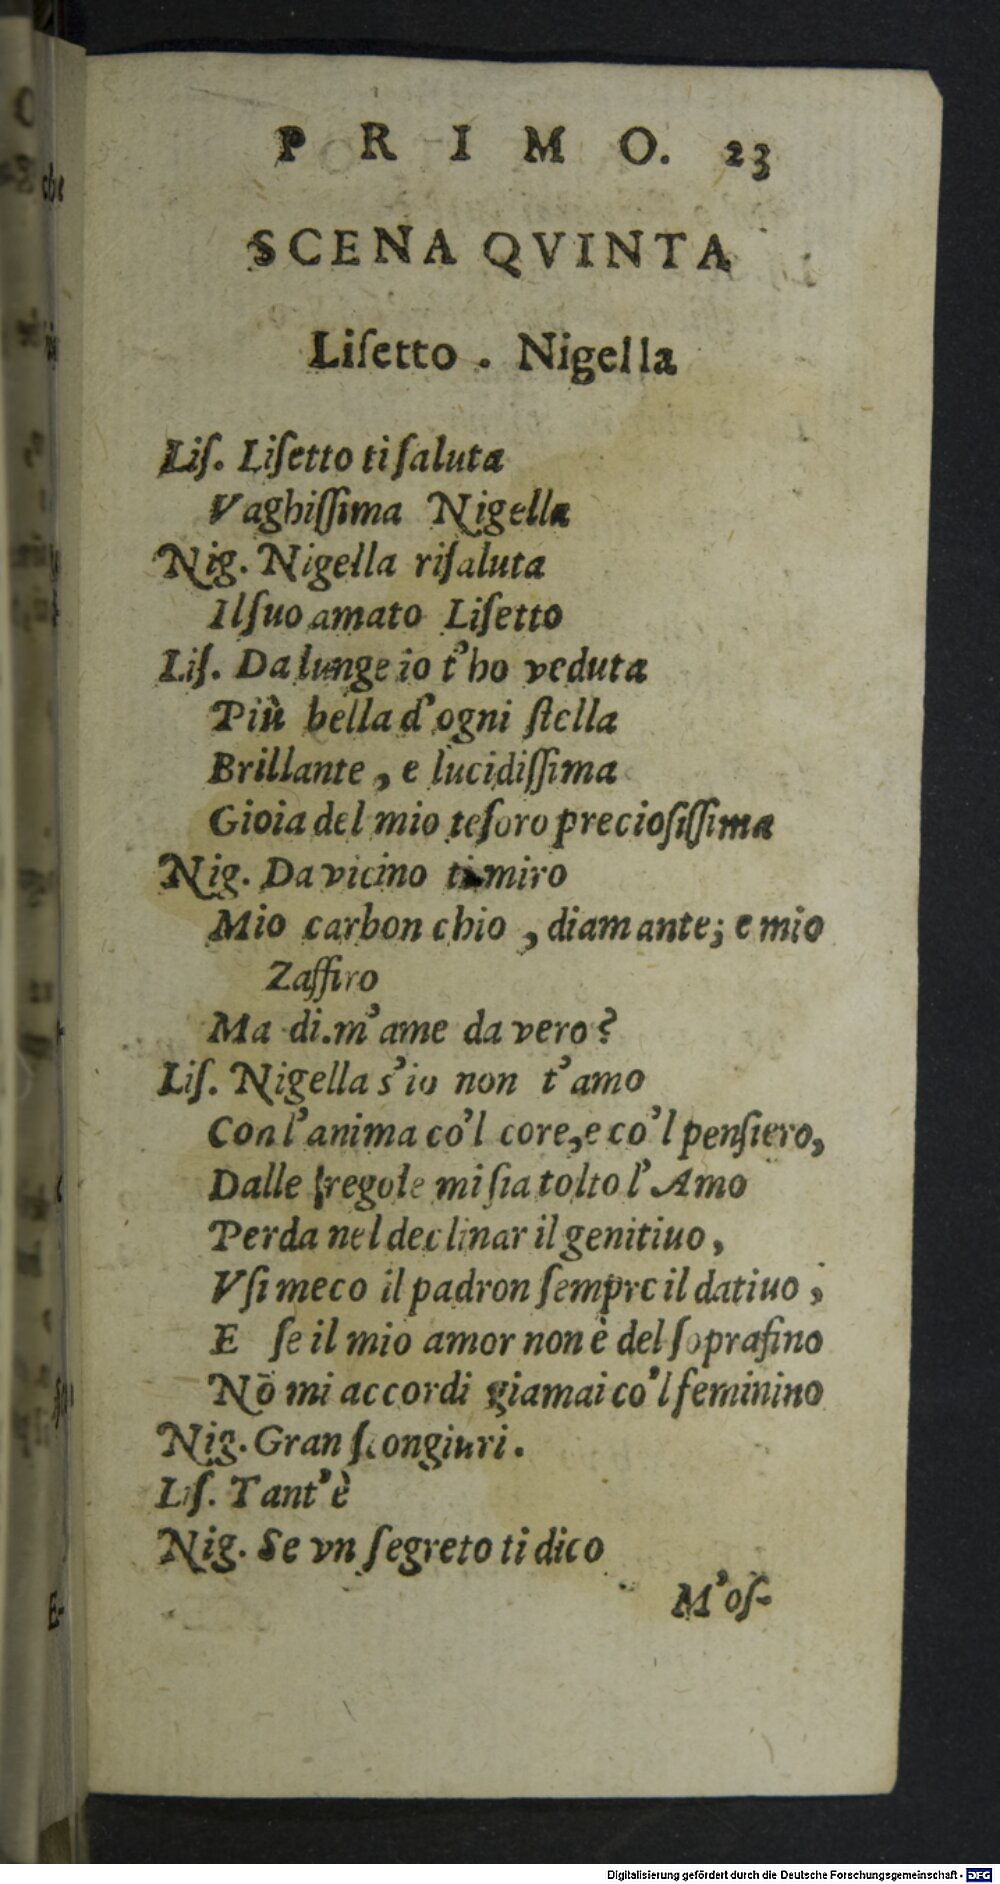 PRIMO. 23
SCENA QVINTA
Liſetto . Nigella
Liſ. Liſetto ti ſaluta
Vaghiſſima Nigella
Nig. Nigella riſaluta
Il ſuo amato Liſetto
Liſ. Da lunge io t'ho veduta
Più bella d'ogni ſtella
Brillante, e lucidiſſima
Gioia del mio teſoro precioſiſſima
Nig. Da vicino ti miro
Mio carbonchio, diamante; e mio
Zaffiro
Ma di. m'ame da vero?
Liſ. Nigella s'io non t'amo
Con l'anima co'l core, e co'l penſiero,
Dalle regole mi ſia tolto l'Amo
Perda nel declinar il genitiuo,
Vſi meco il padron ſempre il datiuo,
E ſe il mio amor non è del ſoprafino
Nō mi accordi giamai co'l feminino
Nig. Gran ſcongiuri.
Liſ. Tant'è
Nig. Se vn ſegreto ti dico
M'oſ-
Digitalisierung gefördert durch die Deutsche Forschungsgemeinschaft - DFG